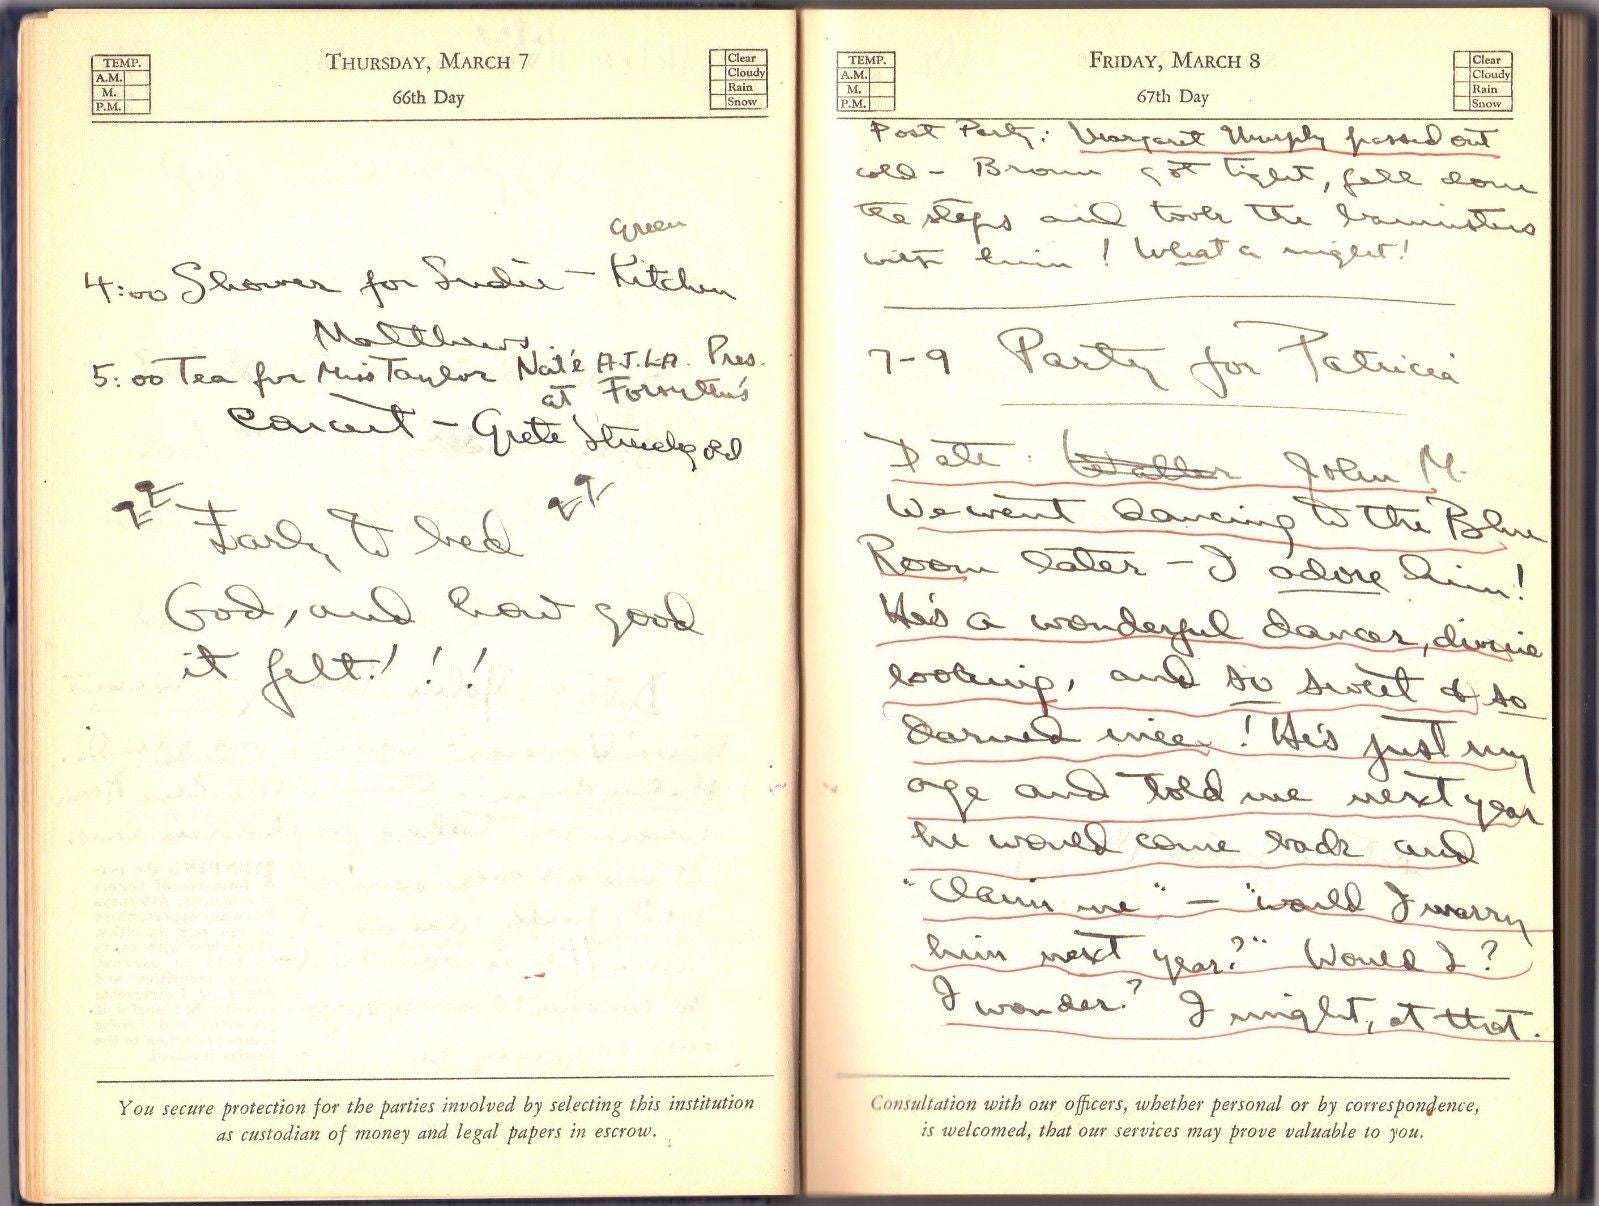 TEMP.
A.M.
M.
P.M.
THURSDAY, MARCH 7
66th Day
Clear
Cloudy
Rain
Snow
green
4:00 Shower for Sudie - Kitchen
Matthews.
5:00 Tea for Miss Taylor Nat'l A.J.L.A. Pres.
at Forsythe's
Concert - Grete
Early to bed
God, and how good
it felt! ! !
You secure protection for the parties involved by selecting this institution
as custodian of money and legal papers in escrow.
TEMP.
A.M.
M.
P.M.
FRIDAY, MARCH 8
67th Day
Clear
Cloudy
Rain
Snow
Post Party: Margaret Murphy passed out
cold - Brown got tight, fell down
the steps and took the bannisters
with him! What a night!
7-9 Party for Patricia
Date: John M.
We went dancing to the Blue
Room later - I adore him!
He's a wonderful dancer, divine
looking, and so sweet & so
darned nice! He's just my
age and told me next year
he would come back and
"claim me" - "would I marry
him next year?" Would I?
I wonder? I might, at that.
Consultation with our officers, whether personal or by correspondence,
is welcomed, that our services may prove valuable to you.